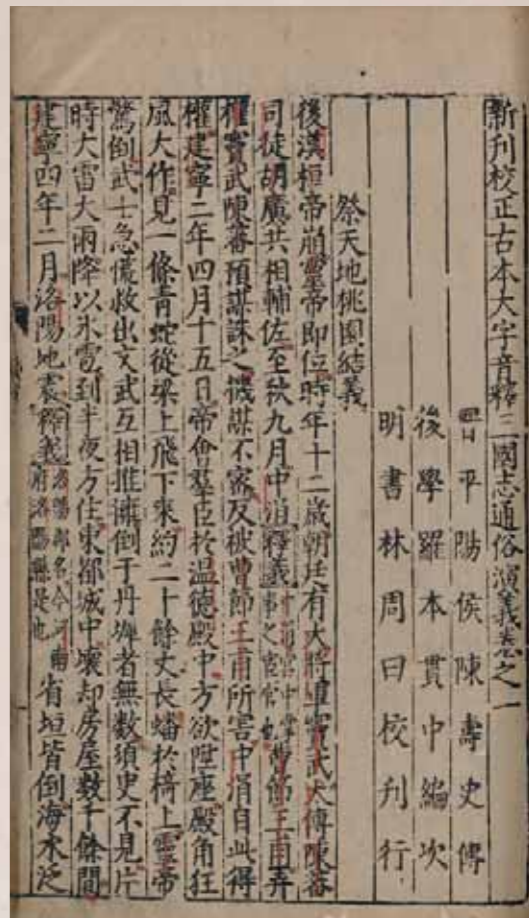 新刊校正古本大字音釋三國志通俗演義卷之一
晉平陽侯陳壽史傳
後學羅本貫中編次
明書林周曰校刊行
祭天地桃園結義
後漢桓帝崩靈帝即位時年十二歲朝廷有大將軍竇武太傅陳蕃
司徒胡廣共相輔佐至秋九月中涓釋義中涓宮中掌事之宦官也曹節王甫弄
權竇武陳蕃預謀誅之機謀不密反被曹節王甫所害中涓自此得
權建寧二年四月十五日帝會羣臣於溫德殿中方欲陞座殿角狂
風大作見一條青蛇從梁上飛下來約二十餘丈長蟠於椅上靈帝
驚倒武士急慌救出文武互相推擁倒于丹墀者無數須臾不見片
時大雷大雨降以氷雹到半夜方住東都城中壞却房屋數千餘間
建寧四年二月洛陽地震釋義洛陽郡名今河南府洛陽縣是也省垣皆倒海水泛